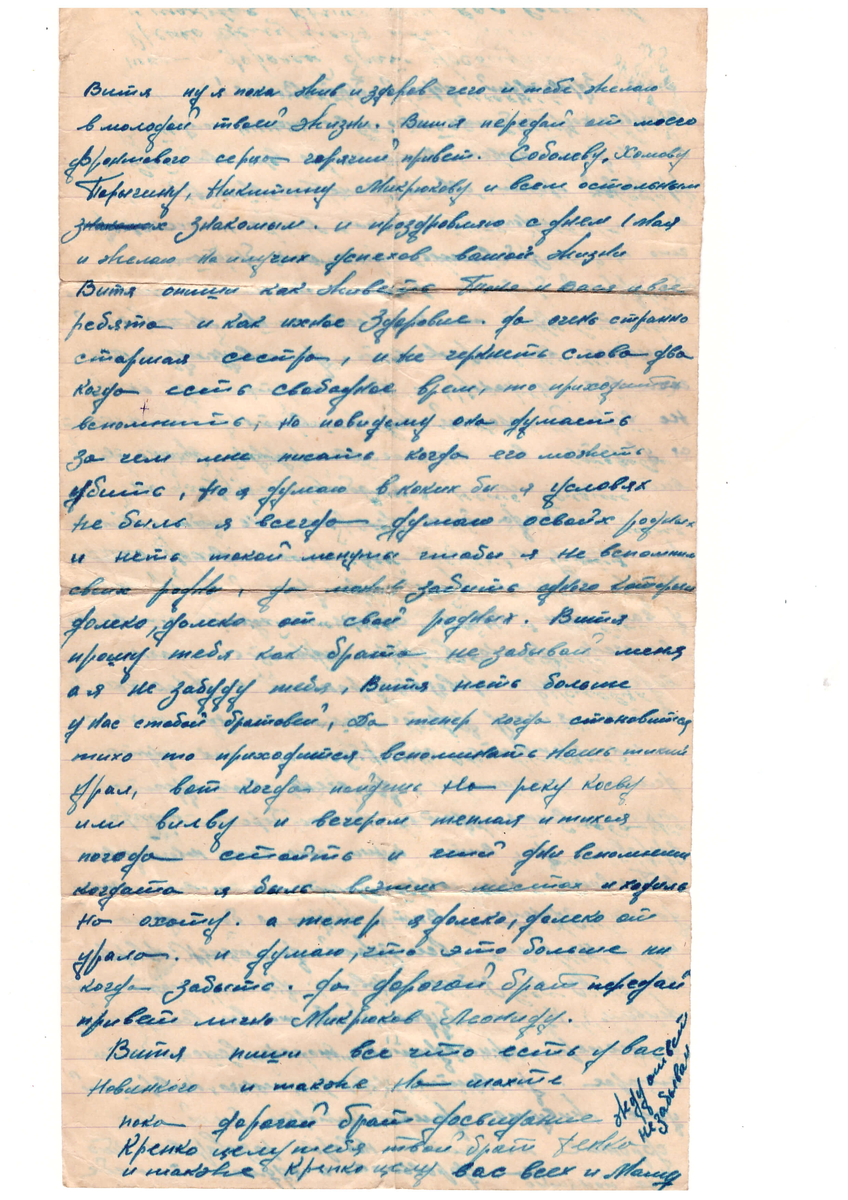 Витя ну я пока жив и здоров чего и тебе желаю
в молодой твоей жизни. Витя передай от моего
фронтового серца горячий привет. Соболеву, Хомову
Парычину, Никитину Микрюкову и всем остальным
знакомых знакомым. и проздровляю с днем 1 мая
и желаю наилучих успехов вашой жизни
Витя опиши как живеть и вася и все
ребята и как ихное Здоровие. да очень странно
старшая сестра, и не черкнеть слова два
когда есть свабодное время, то приходиться
вспомнить, но повидему она думаеть
за чем мне писать когда его можеть
убить, но я думаю в каких бы я условях
не быль я всегда думаю освойх родных
и неть такой менуты чтобы я не вспомнил
своих родны, да забыть этого которы
далеко, далеко от свой родных. Витя
прошу тебя как брата не забывай меня
а я не забуду тебя, Витя неть больше
у нас стобой братовей, Да тепер когда становится
тихо то приходится вспоминать нашь тихий
урал, вот когда пойдешь на реку косву
или вилву и вечером теплая и тихая
погода стойть и эти дни вспомниш
когдато я быль вэтих местах и ходиль
на охоту. а тепер я далеко, далеко от
урала. и думаю, что это больше ни
когда забыть. да дорогой брат передай
привет лично Микрюков Леониду.
Витя пиши все что есть у вас
Новинкого, и также на шахте
пока дорогой брат досвидание
Крепко целу тебя твой брат Генка
и также Крепко целу вас всех и Маму
жду ответ
не забывай